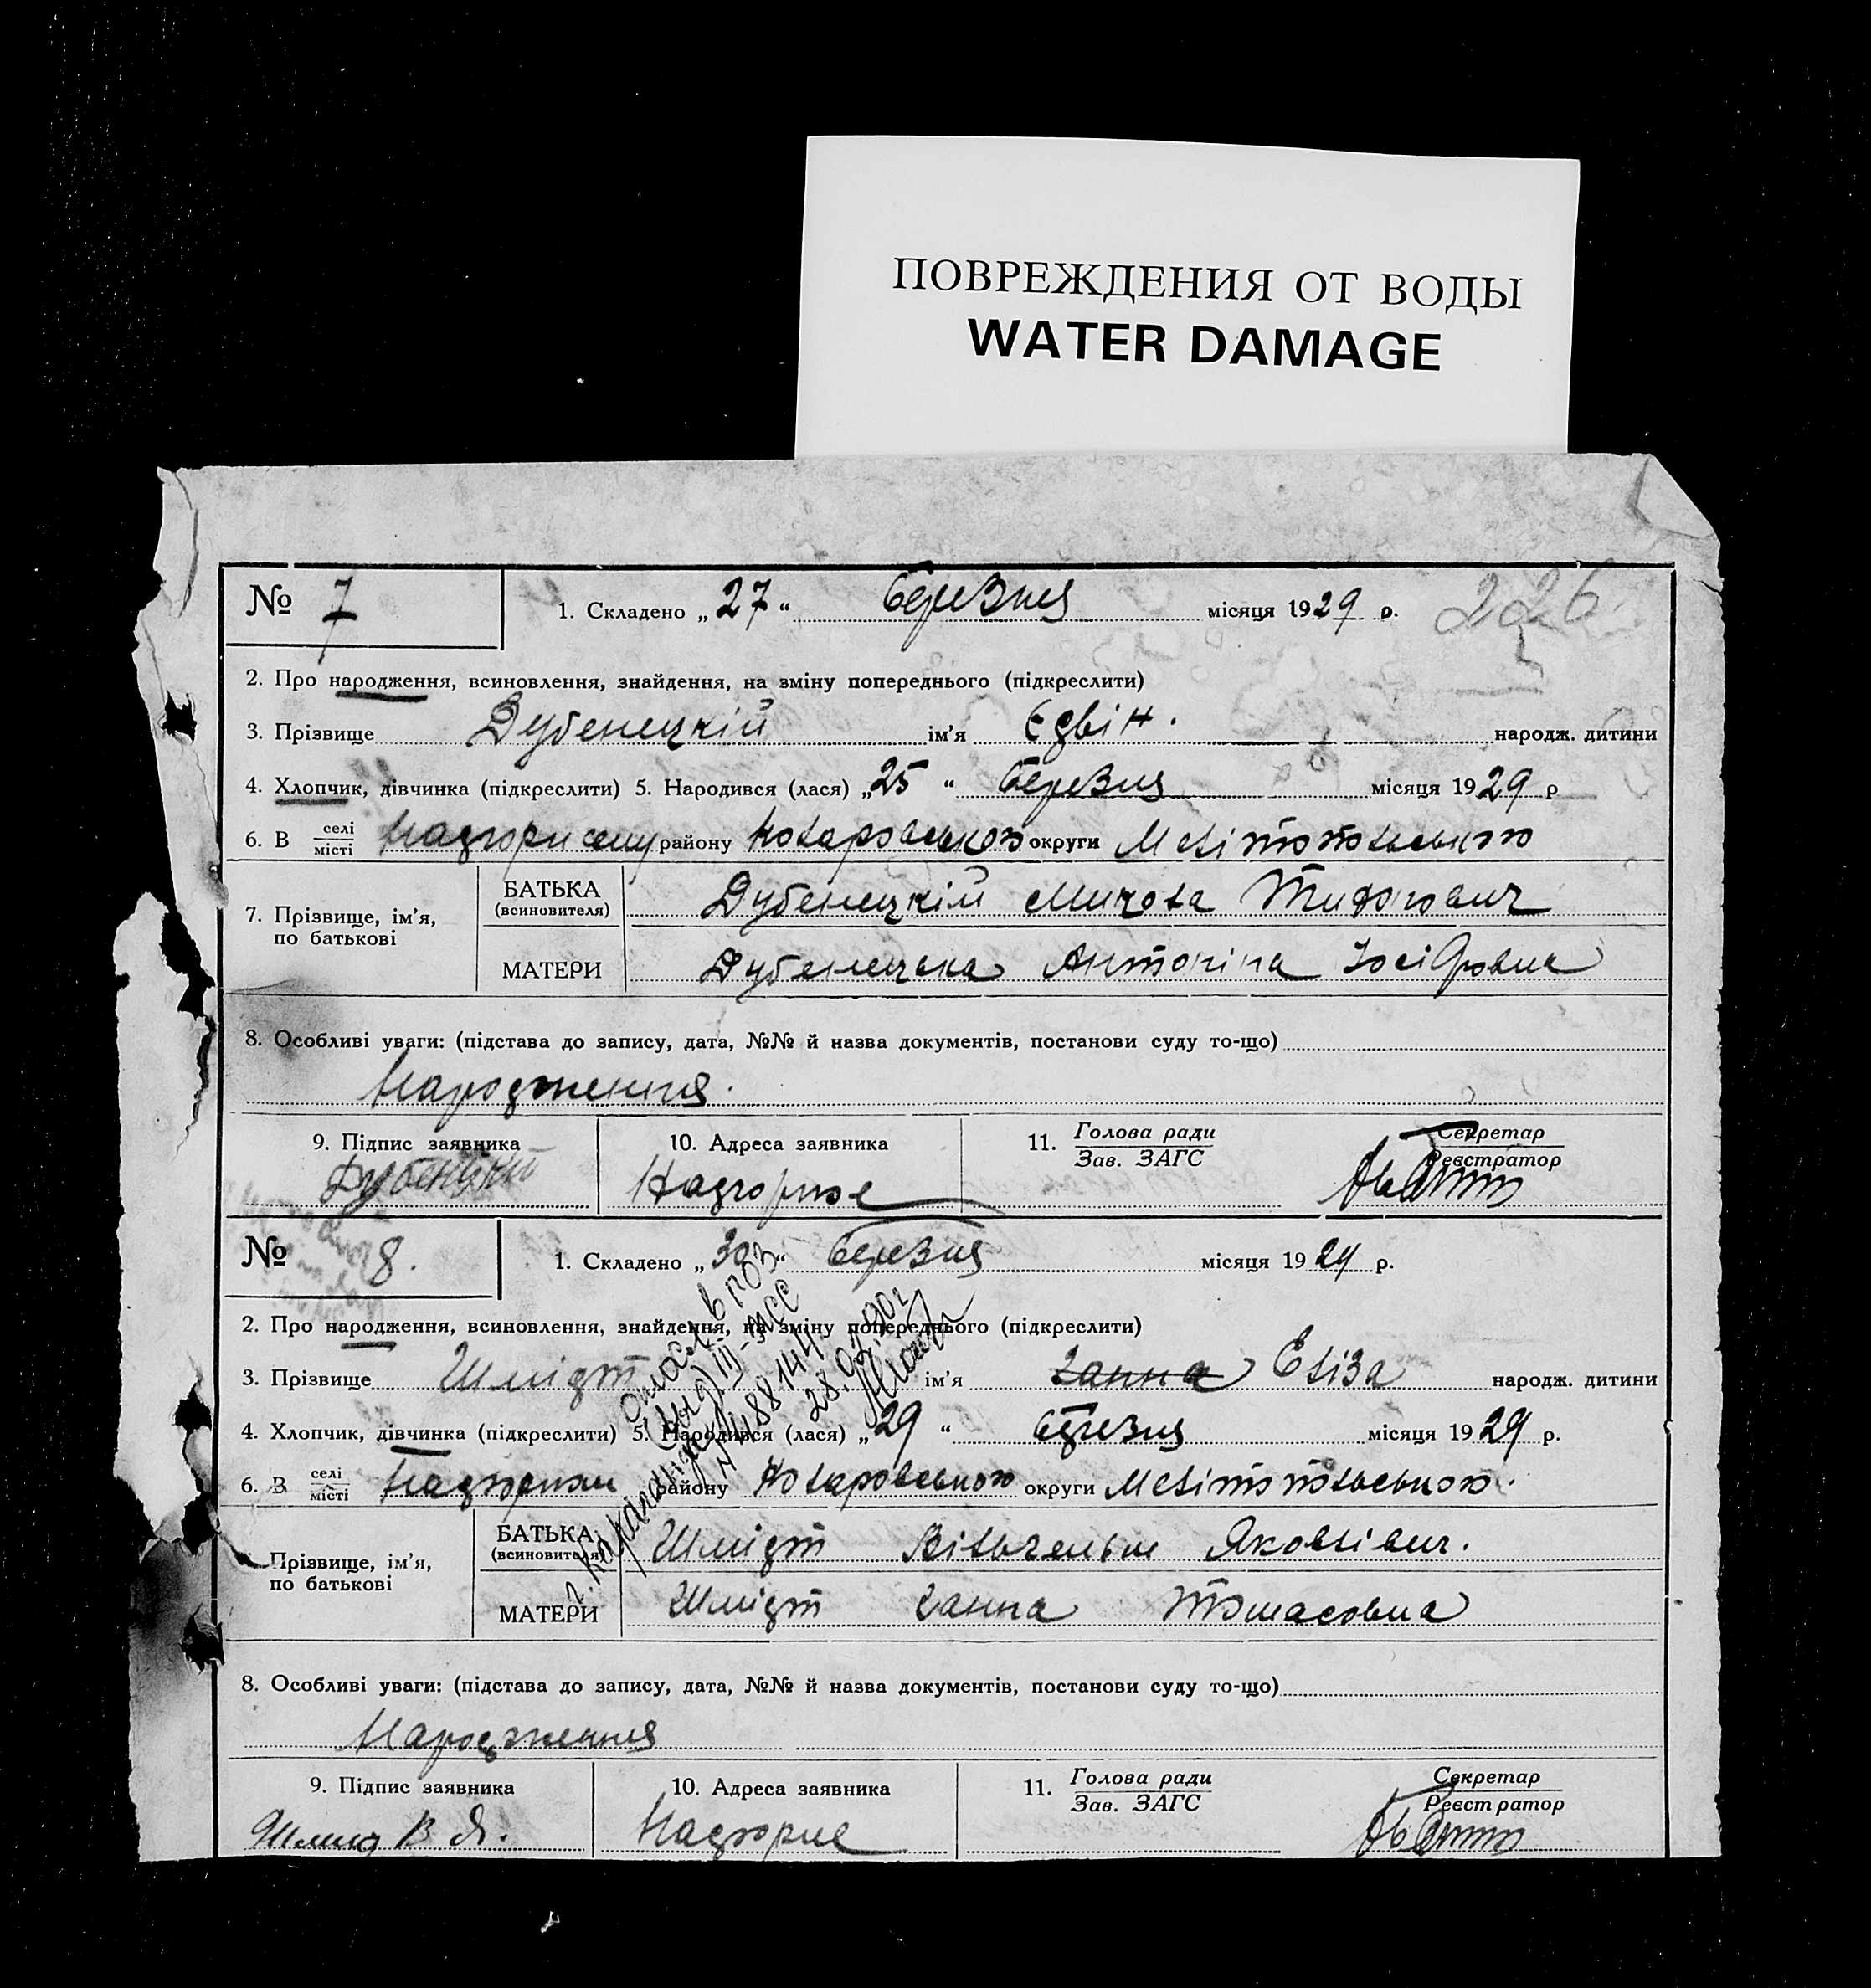 ПОВРЕЖДЕНИЯ ОТ ВОДЫ
WATER DAMAGE
№ 7 1. Складено „27“ березня місяця 1929 р. 226
2. Про народження, всиновлення, знайдення, на зміну попереднього (підкреслити)
3. Прізвище Дубенецкій ім'я Едвін. народж. дитини
4. Хлопчик, дівчинка (підкреслити) 5. Народився (лася) „25“ березня місяця 1929 р
6. В селі/місті району округи Мелітопольського
7. Прізвище, ім'я, по батькові
БАТЬКА (всиновителя) Дубенецкій Микола
МАТЕРИ Дубенецька Антоніна Іосіфовна
8. Особливі уваги: (підстава до запису, дата, №№ й назва документів, постанови суду то-що)
Народження.
9. Підпис заявника 10. Адреса заявника 11. Голова ради/Зав. ЗАГС Секретар/Реєстратор
Надгорное
№ 8. 1. Складено „30“ березня місяця 1929 р.
2. Про народження, всиновлення, знайдення, на зміну попереднього (підкреслити)
3. Прізвище Шмідт ім'я Ганна Еліза народж. дитини
4. Хлопчик, дівчинка (підкреслити) 5. Народився (лася) „29“ березня місяця 1929 р.
6. В селі/місті району округи Мелітопольського.
Прізвище, ім'я, по батькові
БАТЬКА (всиновителя) Шмідт Вільгельм Яковлівич.
МАТЕРИ Шмідт Ганна Томасовна
8. Особливі уваги: (підстава до запису, дата, №№ й назва документів, постанови суду то-що)
Народження
9. Підпис заявника 10. Адреса заявника 11. Голова ради/Зав. ЗАГС Секретар/Реєстратор
Шмид В Я. Надгорне